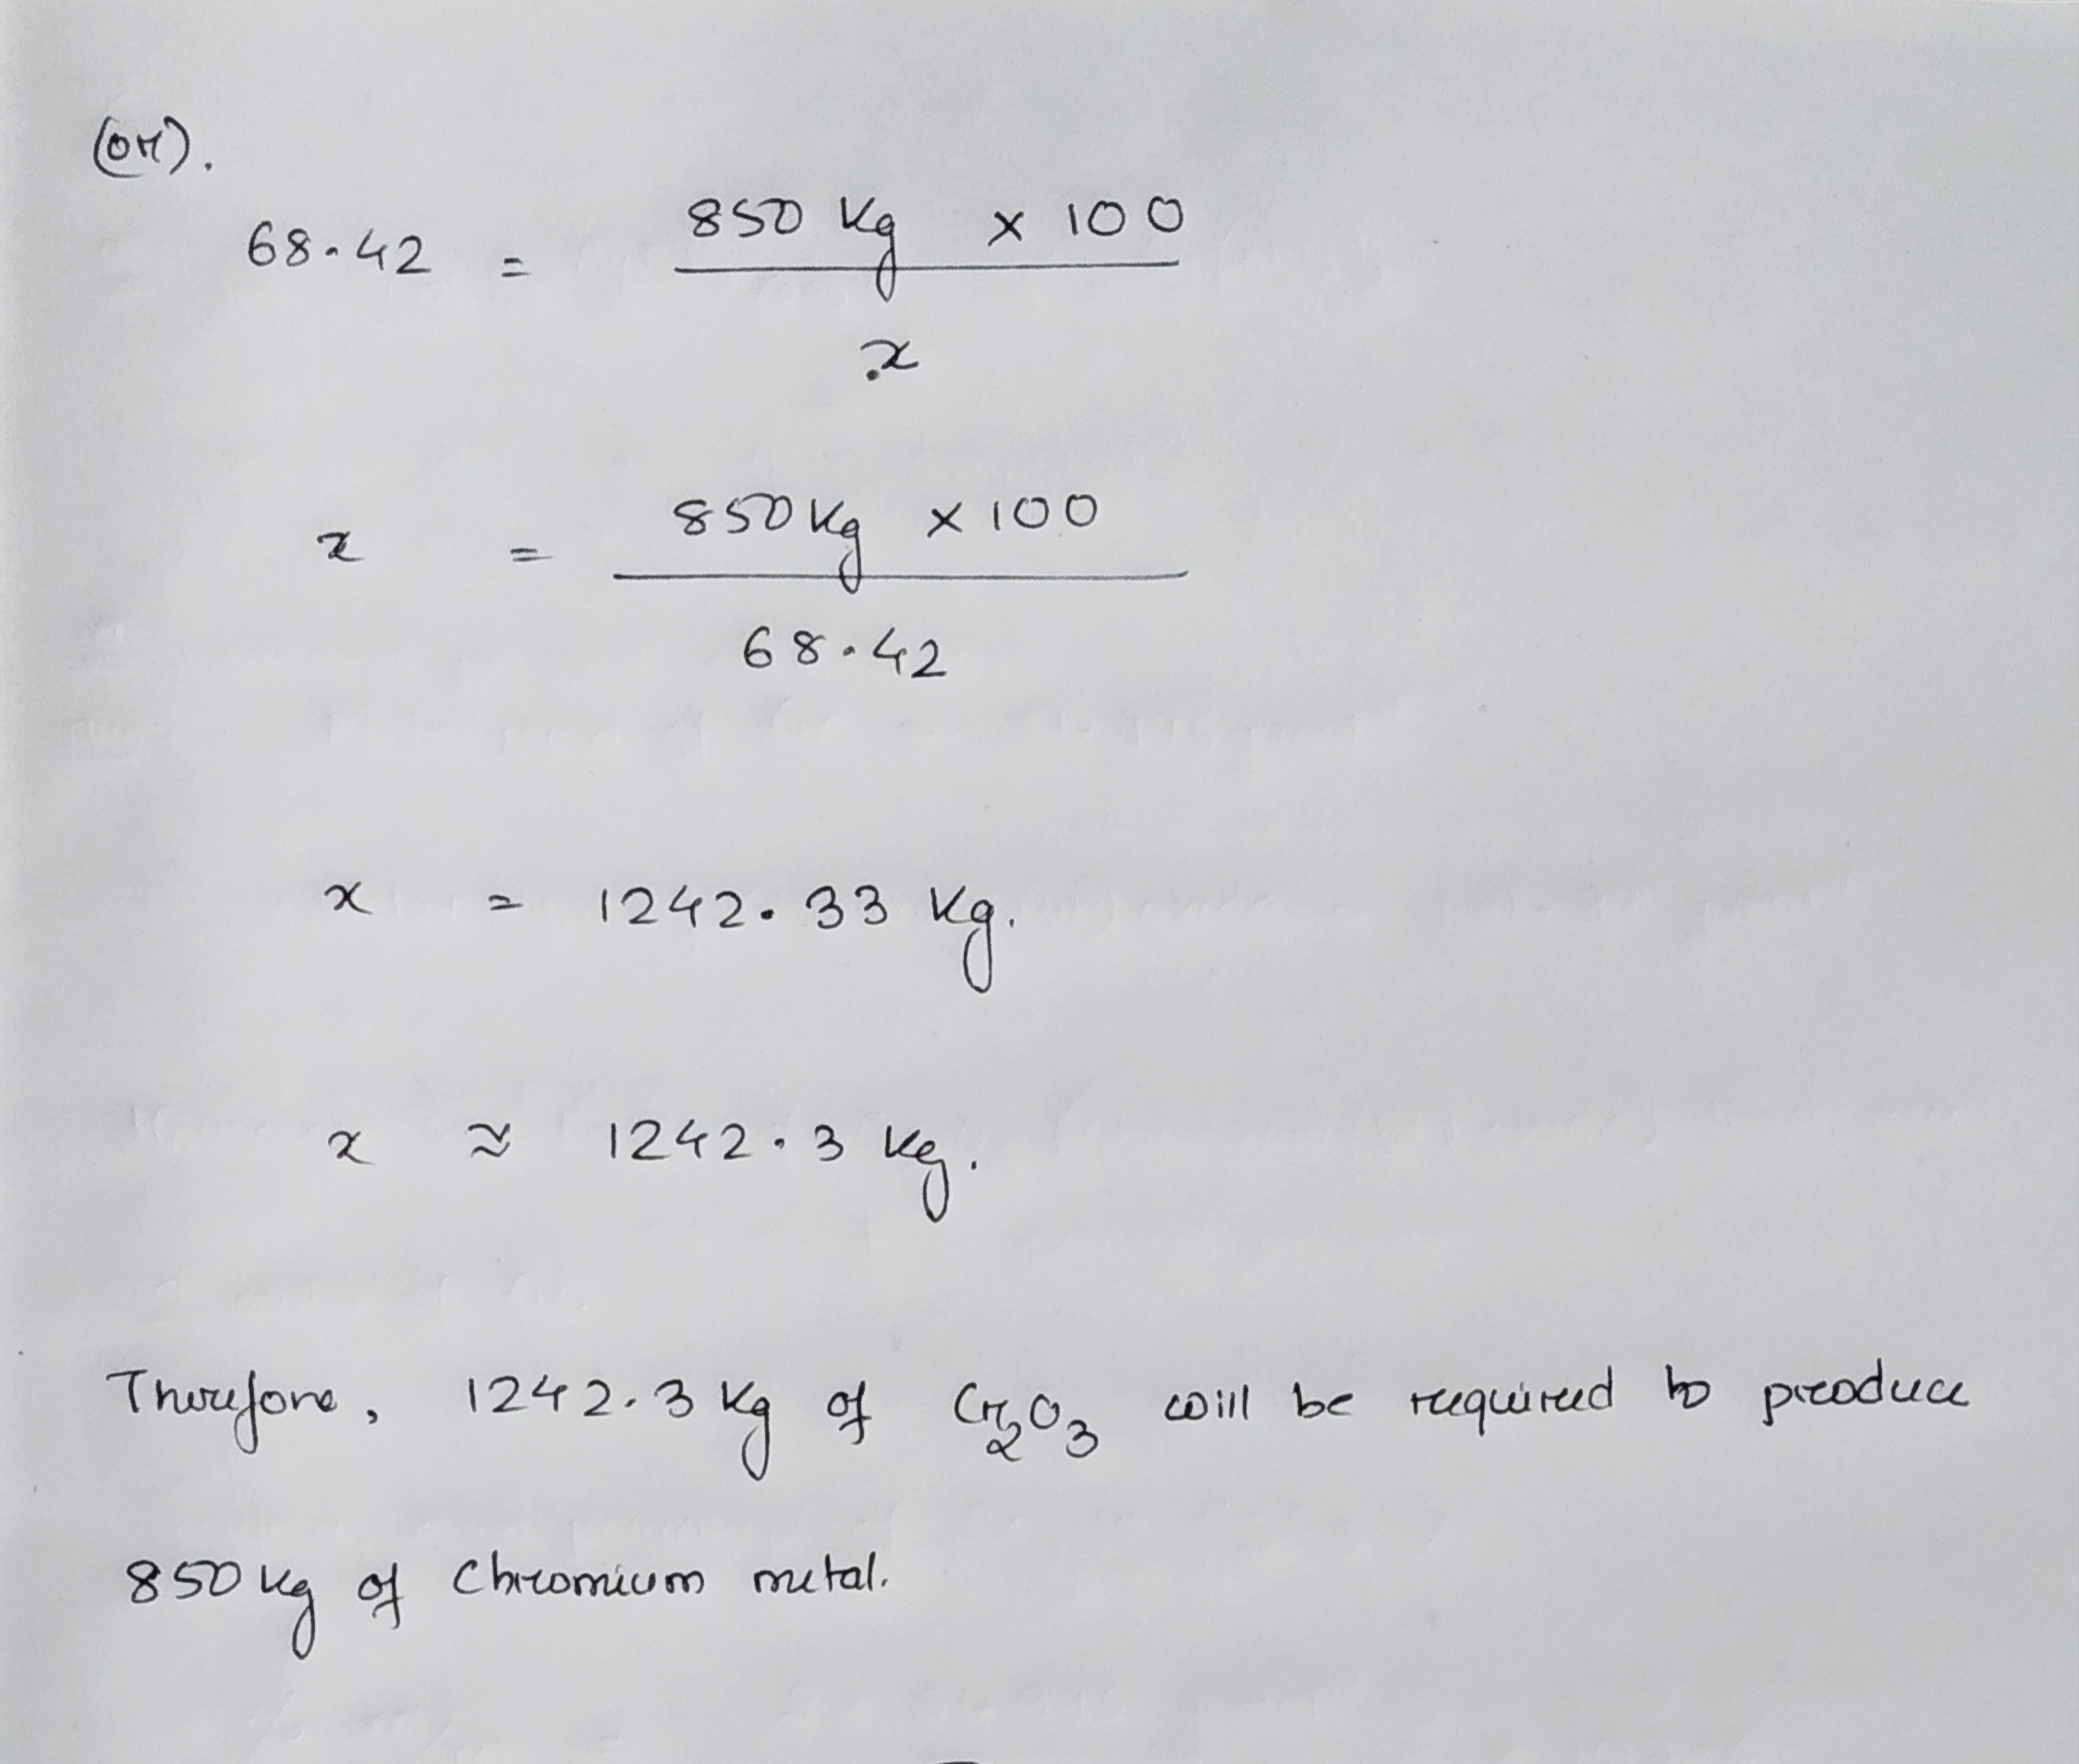 (or).
68.42 = 850 Kg × 100 / x
x = 850 Kg × 100 / 68.42
x = 1242.33 Kg.
x ≈ 1242.3 Kg.
Therefore, 1242.3 Kg of Cr₂O₃ will be required to produce
850 Kg of Chromium metal.